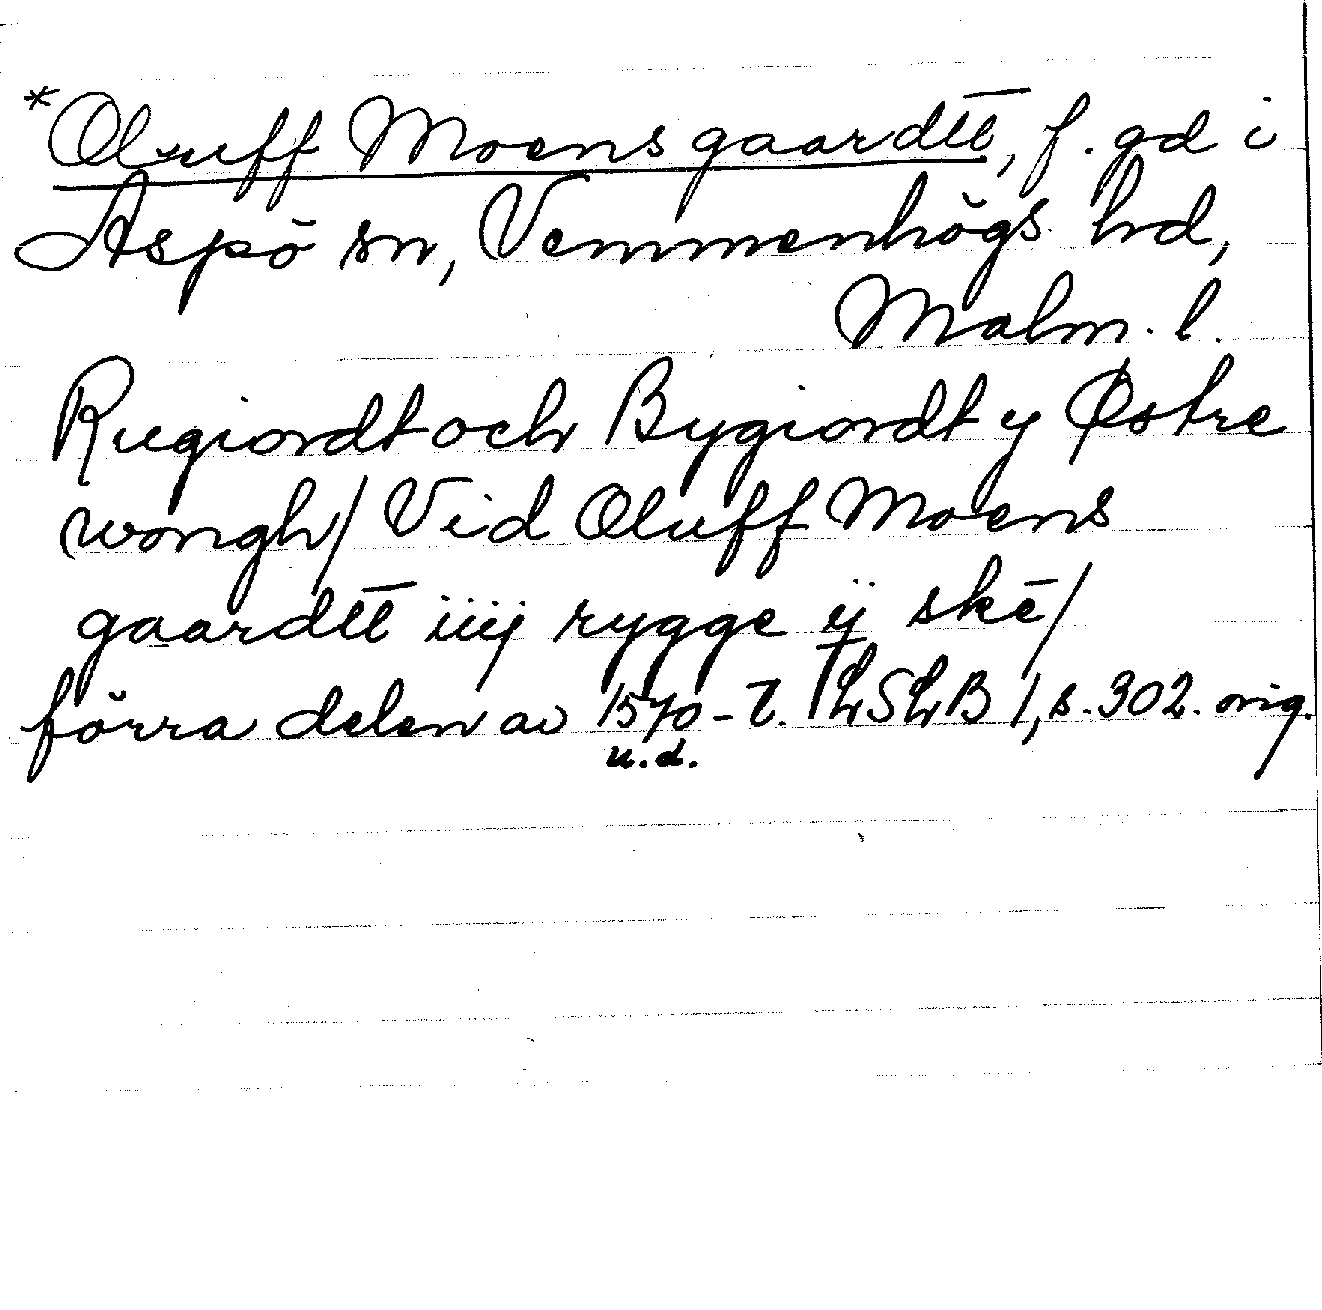 *Oluff Moens gaardtt̄, f. gd i
Äspö sn, Vemmenhögs hd,
Malm. l.
Rugiordt och Bygiordt y Østre
wongh/ Vid Oluff Moens
gaardtt̄ iiij rygge ij skē/
förra delen av 1570-t. LSLB 1, s. 302. orig.
u. d.